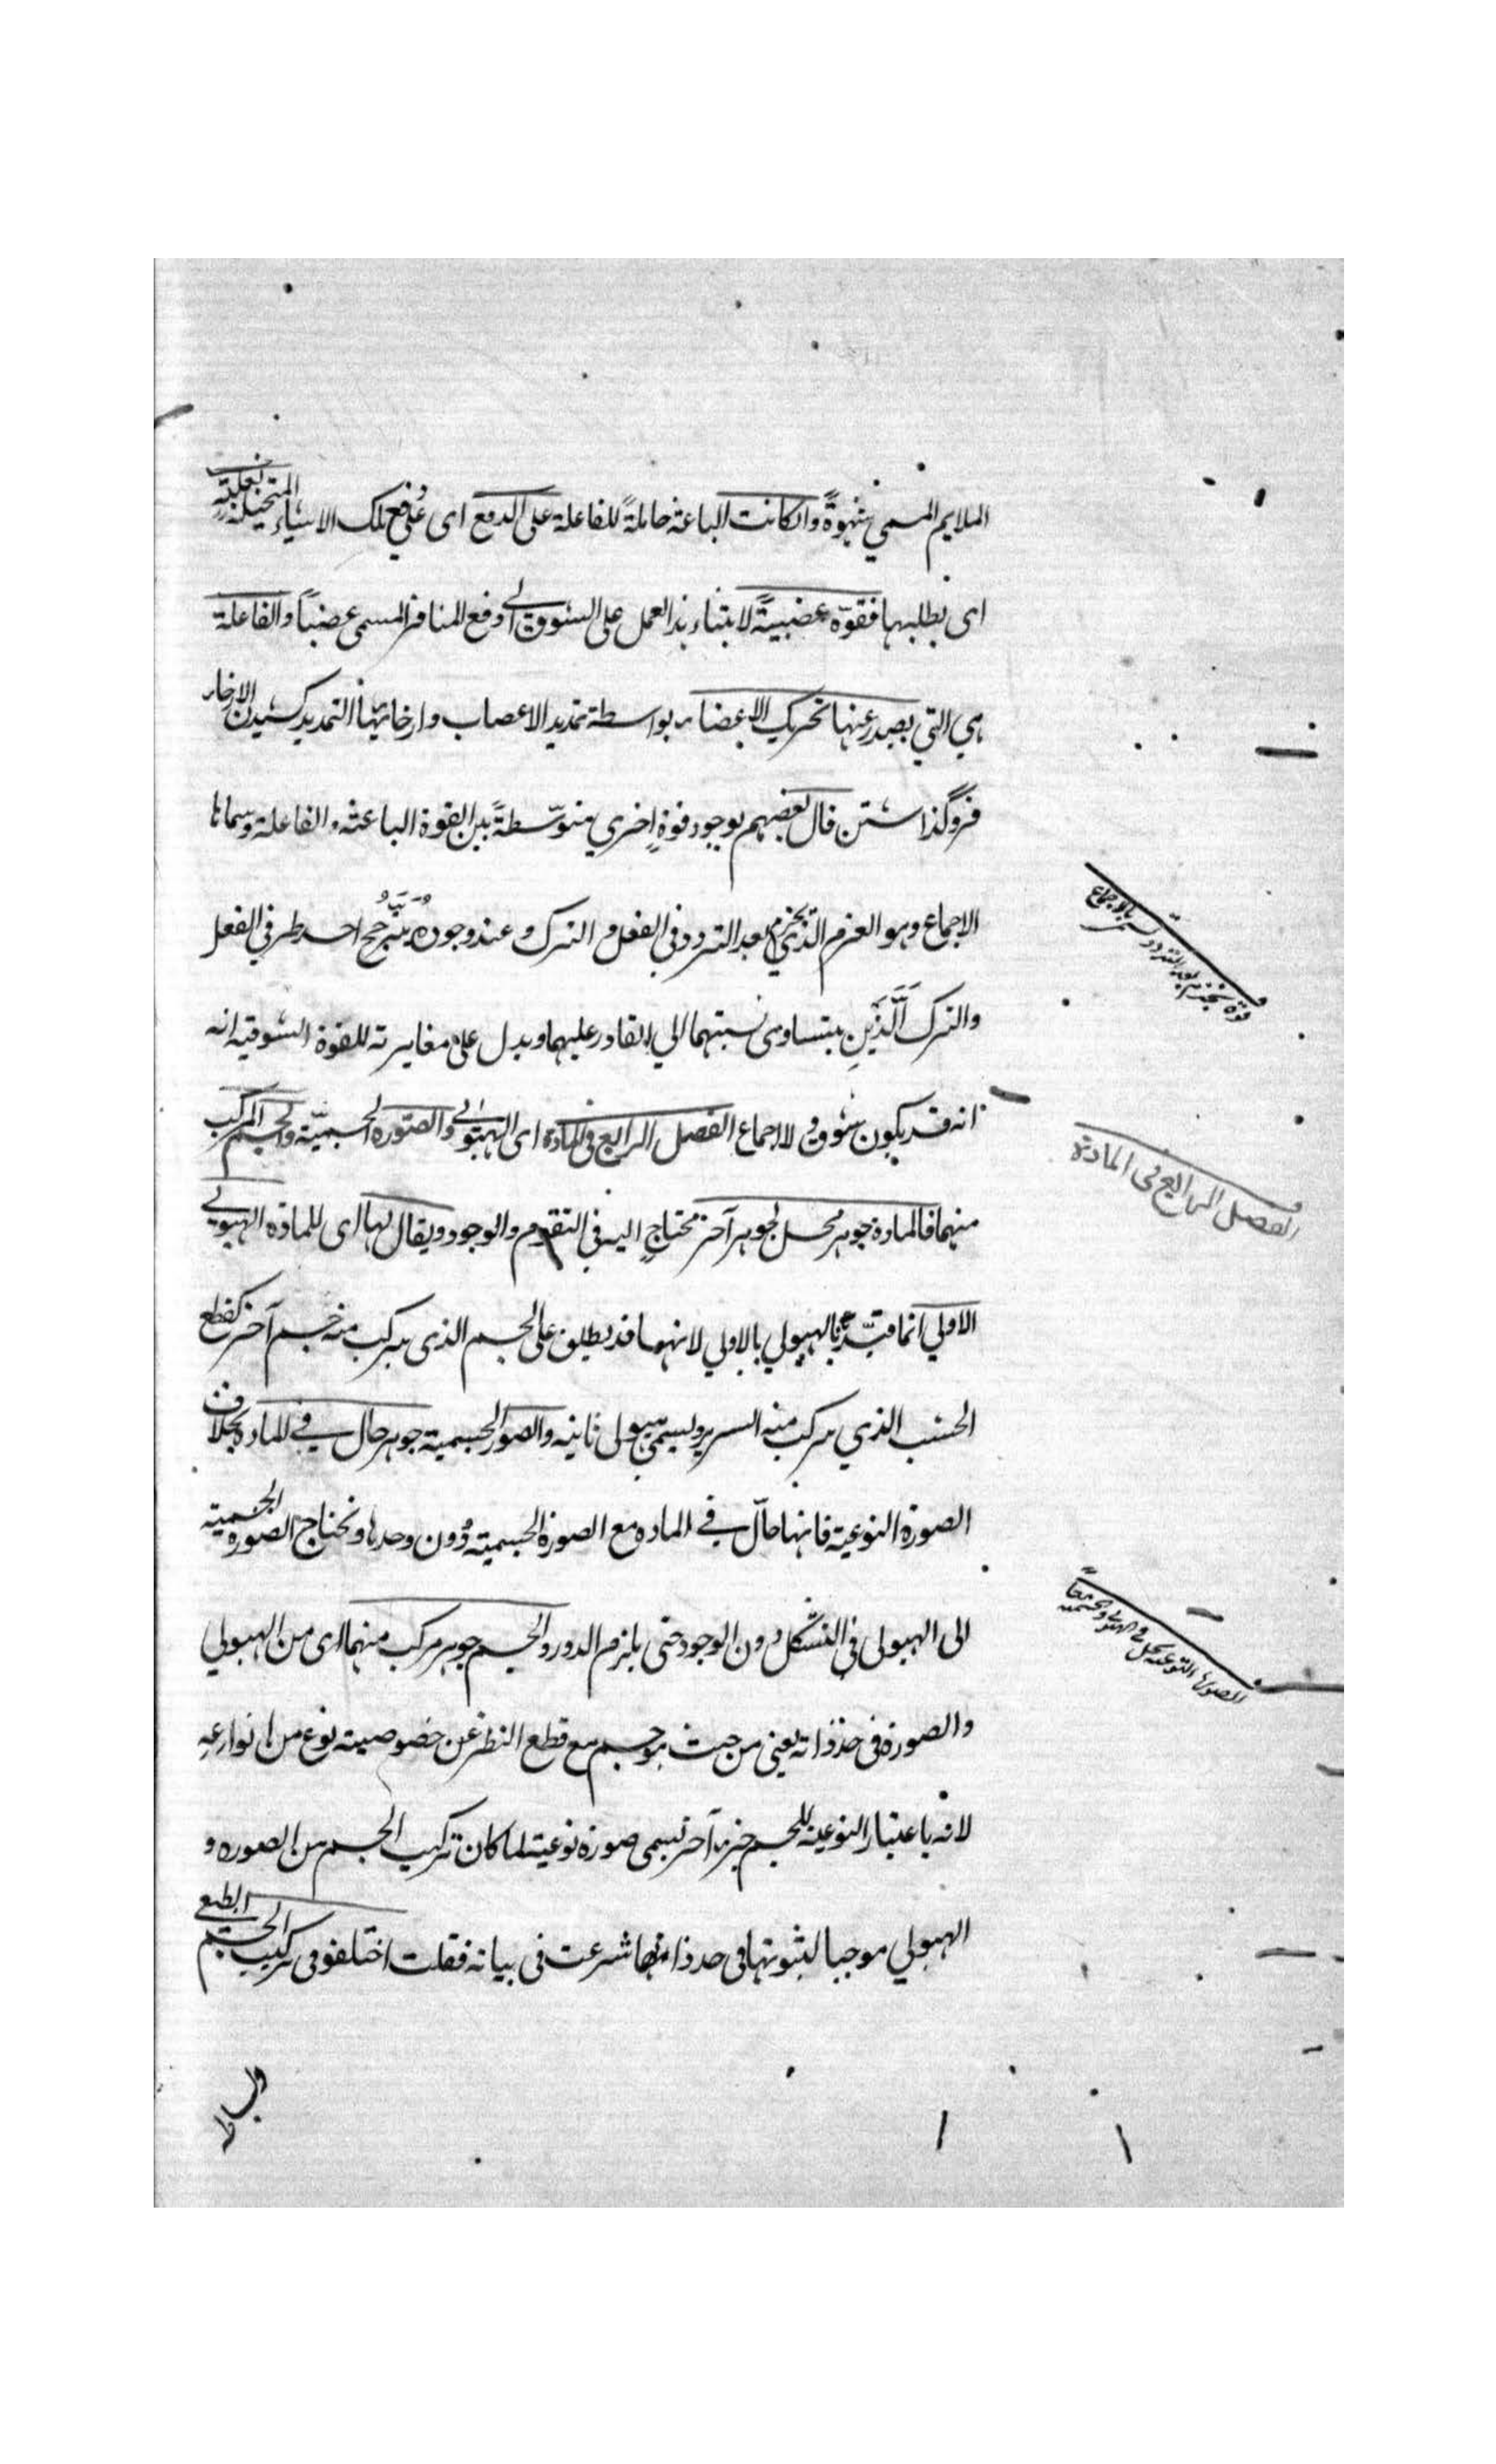 الملايم المسمي شهوةً وان كانت الباعثة حاملةً للفاعلة على الدفع اى على دفع تلك الاشياء المتخيلة
اى بطلبها فقوّة غضبيةً لابتناء هذا العمل على الشوق الى دفع المنافر المسمى غضباً والفاعلة
هي التي يصدر عنها تحريك الاعضاء بواسطة تمديد الاعصاب وارخائها التمديد كشيدن الارخاء
فروگذاشتن قال بعضهم بوجود قوةٍ اخري متوسّطةً بين القوة الباعثه والفاعلة وسماها
الاجماع وهو العزم الذي بعد التردد في الفعل و الترك و عند وجوده يترجح احد طرفي الفعل
والترك الَّذَينِ يتساوى نسبتهما الي القادر عليهما ويدل على مغايرته للقوة الشوقيه انه
انه قد يكون شوق ولا اجماع الفصل الرابع في المادة اى الهيولى والصورة الجسميّة والجسم المركب
منهما فالمادة جوهر محل لجوهر آخر محتاجٍ اليه في التقوم والوجود ويقال لها اى للمادة الهيولي
الاولي انما قيّدنا الهيولي بالاولي لانهما قد يطلق على الجسم الذى يتركب منه جسم آخر كقطع
الخشب الذي يتركب منه السرير ويسمى هيولى ثانيه والصور الجسمية جوهر حال في المادة بخلاف
الصورة النوعية فانها حالّ في الماده مع الصورة الجسمية دُون وحدها وتحتاج الصوره الجسمية
الى الهيولى في التشكل دون الوجود حتى يلزم الدور والجسم جوهر مركب منهما اى من الهيولي
والصورة فى حد ذاته يعنى من حيث هو جسم مع قطع النظر عن خصوصية نوع من انواعه
لانه باعتبار النوعية للجسم جزء آخر تسمى صورة نوعية لما كان تركيب الجسم من الصوره و
الهيولي موجبا لثبوتها فى حد ذاتها شرعت فى بيانه فقلت اختلفو فى تركيب الجسم الطبعى
قوة بعد التردد تسمى بالاجماع
الفصل الرابع فى المادة
الصورة النوعية يحل فى الهيولى والجسمية معاً